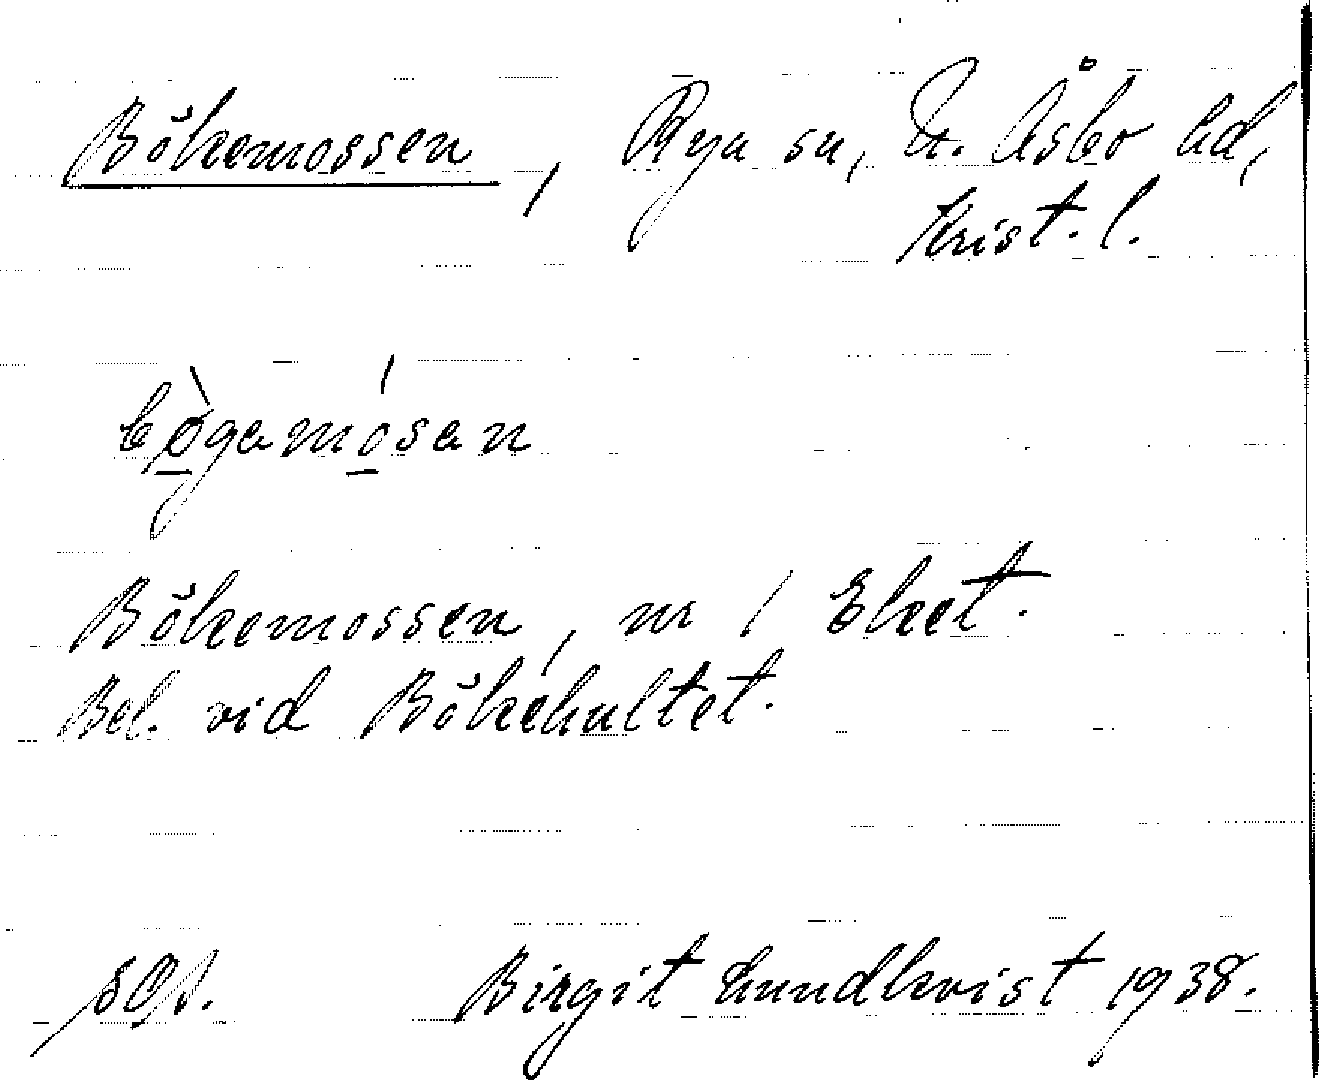 Bökemossen, Rya sn, N. Åsbo hd,
Krist. l.
bø̀gamósan
Bökemossen, nr 1 Eket.
Bel. vid Bökehultet.
Birgit Lundkvist 1938.